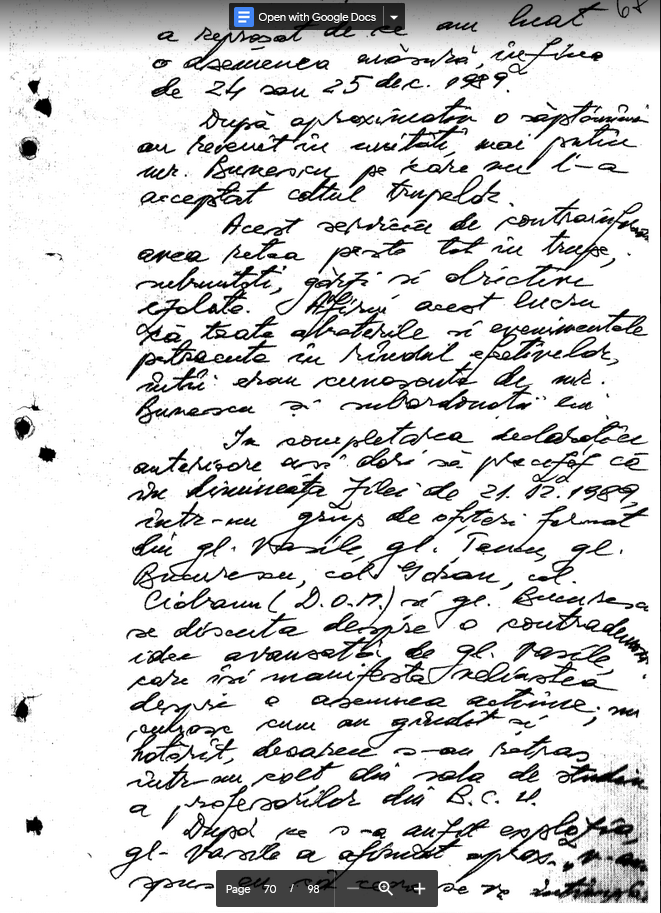 Open with Google Docs
68
a reproșat de ce am luat
o asemenea măsură, în fine
de 24 sau 25 dec. 1989.
După aproximativ o săptămînă
au revenit în unități, mai puțin
mr. Bunescu pe care nu l-a
acceptat cdtul trupelor.
Acest serviciu de contrainf
avea rețea peste tot în trupe,
subunități, gărzi si obiective
izolate. Afirm acest lucru
că toate abaterile si evenimentele
petrecute în rîndul efectivelor,
întîi erau cunoscute de mr.
Bunescu si subordonatii lui
In completarea declarației
anterioare asi dori să precizez că
în dimineața zilei de 21.12.1989,
într-un grup de ofițeri format
din gl. Vasile, gl. Tencu, gl.
Bucurescu, col. Goran, col.
Ciobanu (D.O.M.) si gl. Bucurescu
se discuta despre o
idee avansată de gl. Vasile,
care își manifesta neliniștea
despre o asemenea acțiune; nu
cunosc cum au gîndit si
hotărît, deoarece s-au retras
într-un colt din sala de studiu
a profesorilor din B.C.U.
După ce s-a auzit explozia,
gl. Vasile a afirmat aprox. "v-am
spus eu că ceva se va întîmpla
Page 70 / 98